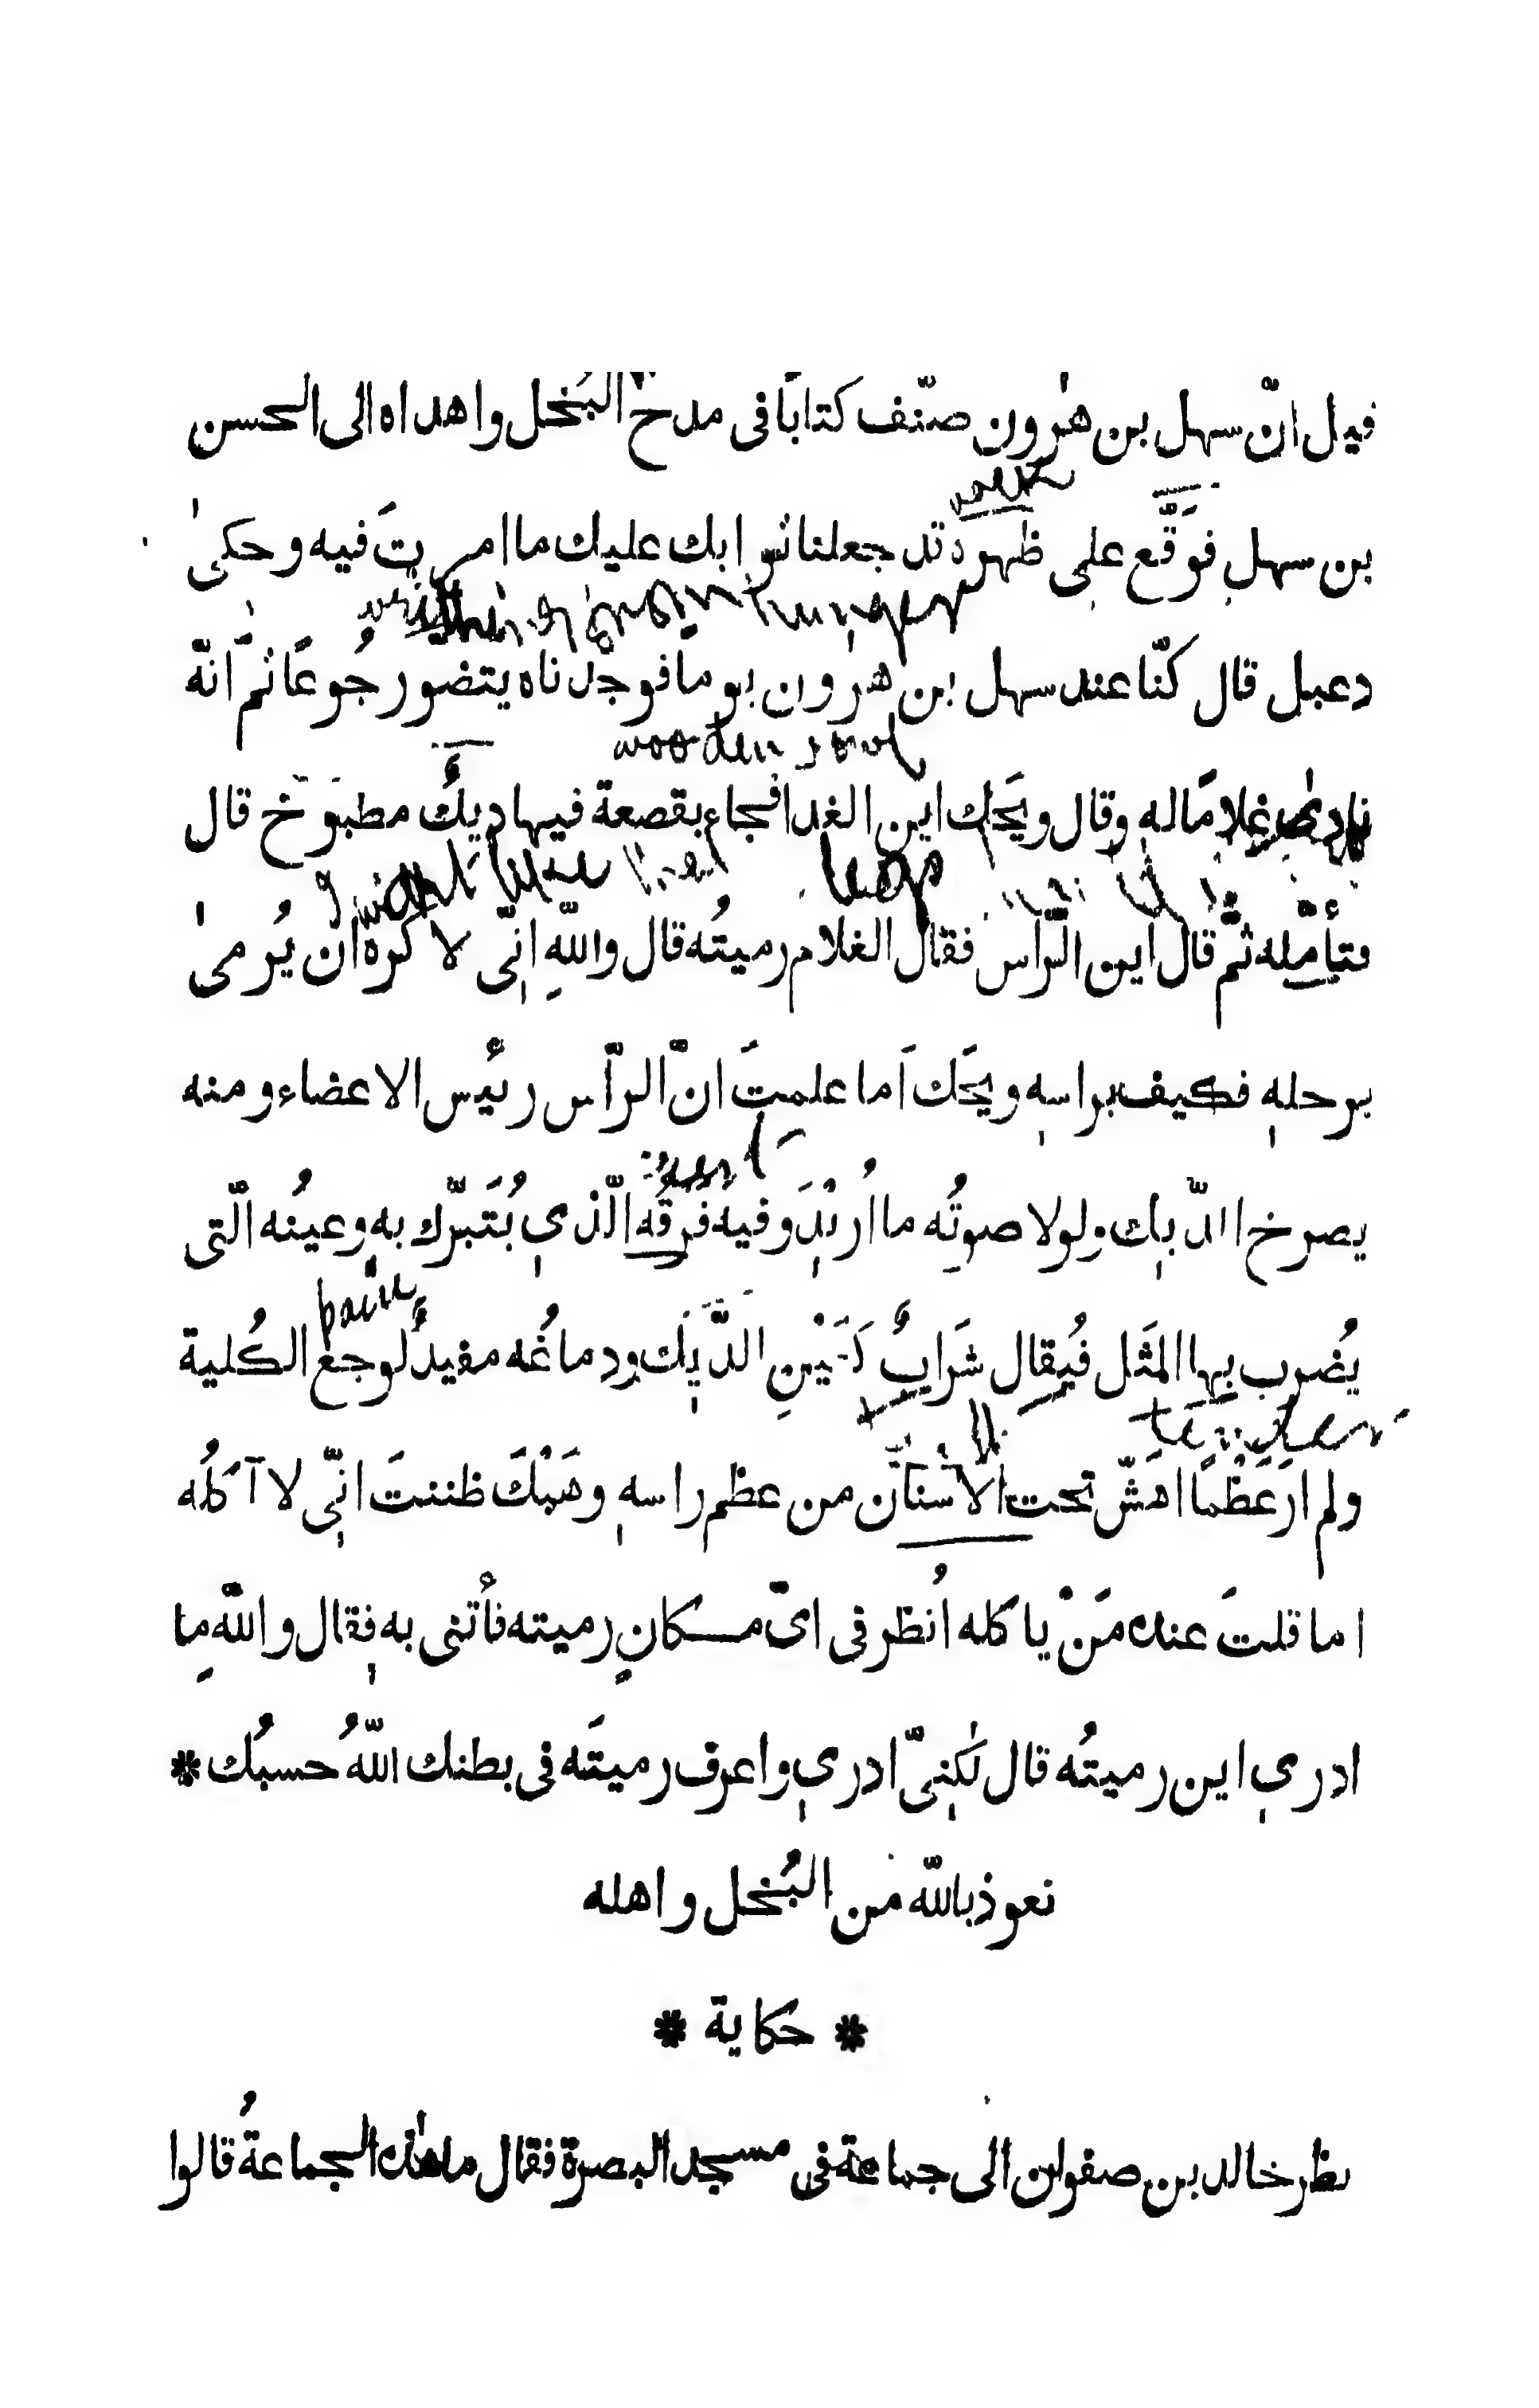 قيل انّ سهل بن هٰرون صنّف كتابًا فى مدح البُخل واهداه الى الحسن
بن سهلٍ فوَقَّع على ظهره قد جعلنا ثوابك عليك ما امرتَ فيه وحكىٰ
دعبل قال كنّا عند سهل ابن هٰرون يومًا فوجدناه يتضور جُوعًا ثمّ انّه
نادىٰ غلامًا له وقال ويَحَك اين الغدا فجاء بقصعة فيها ديكٌ مطبوخ قال
wooden bowl
فتأمّله ثمّ قال اين الرّاس فقال الغلام رميتُه قال واللّهِ انّى لاكره ان يُرمىٰ
برجلهٖ فكيف براسهٖ ويحَك اَما علمتَ انّ الرّاس رئيس الاعضاء ومنه
يصرخ الدّيك ولولا صوتُه ما اُريْدَ وفيه فرقُه الّذى يُتَبرّك به وعينُه الّتى
pain
يُضرب بها المثَل فُيقال شَرابٌ كَعَيْنِ الدّيك ودماغُه مفيدٌ لوجع الكُلية
ولم ارَ عَظْمًا اهَشّ تحت الاسنان من عظم راسهٖ وهَبْكَ ظننتَ انّى لا آكلُه
اما قلتَ عنده مَنْ ياكله اُنظر فى اىّ مكانٍ رميته فأتنى به فقال واللّه ما
ادرى اين رميتُه قال لٰكنىّ ادرى واعرف رميتَه فى بطنك اللّهُ حسبُك *
نعوذ باللّه من البُخل واهله
* حكاية *
نظر خالد بن صفوان الى جماعة فى مسجد البصرة فقال ما هٰذه الجماعةُ قالوا